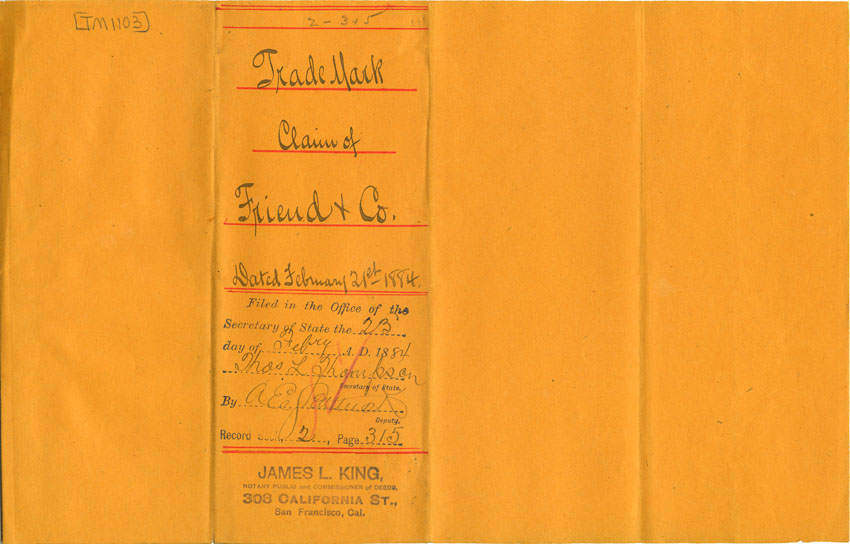 [TM1103]
2-315
Trade Mark
Claim of
Friend & Co.
Dated February 21st 1884.
Filed in the Office of the
Secretary of State the 23
day of Febry A. D. 1884
Thos L Thompson
Secretary of State.
By A. E.
Deputy.
Record Book 2, Page 315
JAMES L. KING,
NOTARY PUBLIC and COMMISSIONER of DEEDS,
308 CALIFORNIA ST.,
San Francisco, Cal.